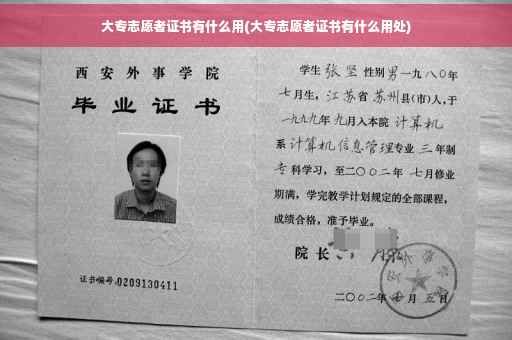 大专志愿者证书有什么用(大专志愿者证书有什么用处)
西安外事学院
毕业证书
证书编号:0209130411
学生 张坚 性别 男 一九八〇年
七月生，江苏省 苏州县(市)人，于
一九九九年 九月入本院 计算机
系 计算机信息管理专业 三 年制
专科学习，至二〇〇二年 七月修业
期满，学完教学计划规定的全部课程，
成绩合格，准予毕业。
院长
二〇〇二年 月 五日